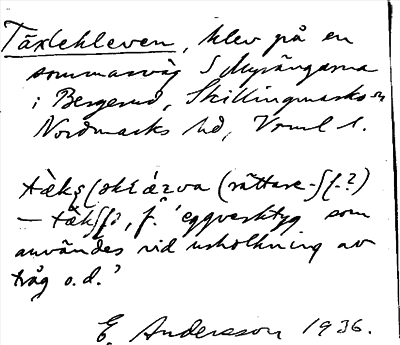 Täxlekleven, klev på en
sommarväg S Myrängarna
i Bergerud, Skillingmarks sn
Nordmarks hd, Vrml l.
(rättare -ʃ(.?)
f. 'eggverktyg som
användes vid urholkning av
tråg o.d.'
E. Andersson 1936.